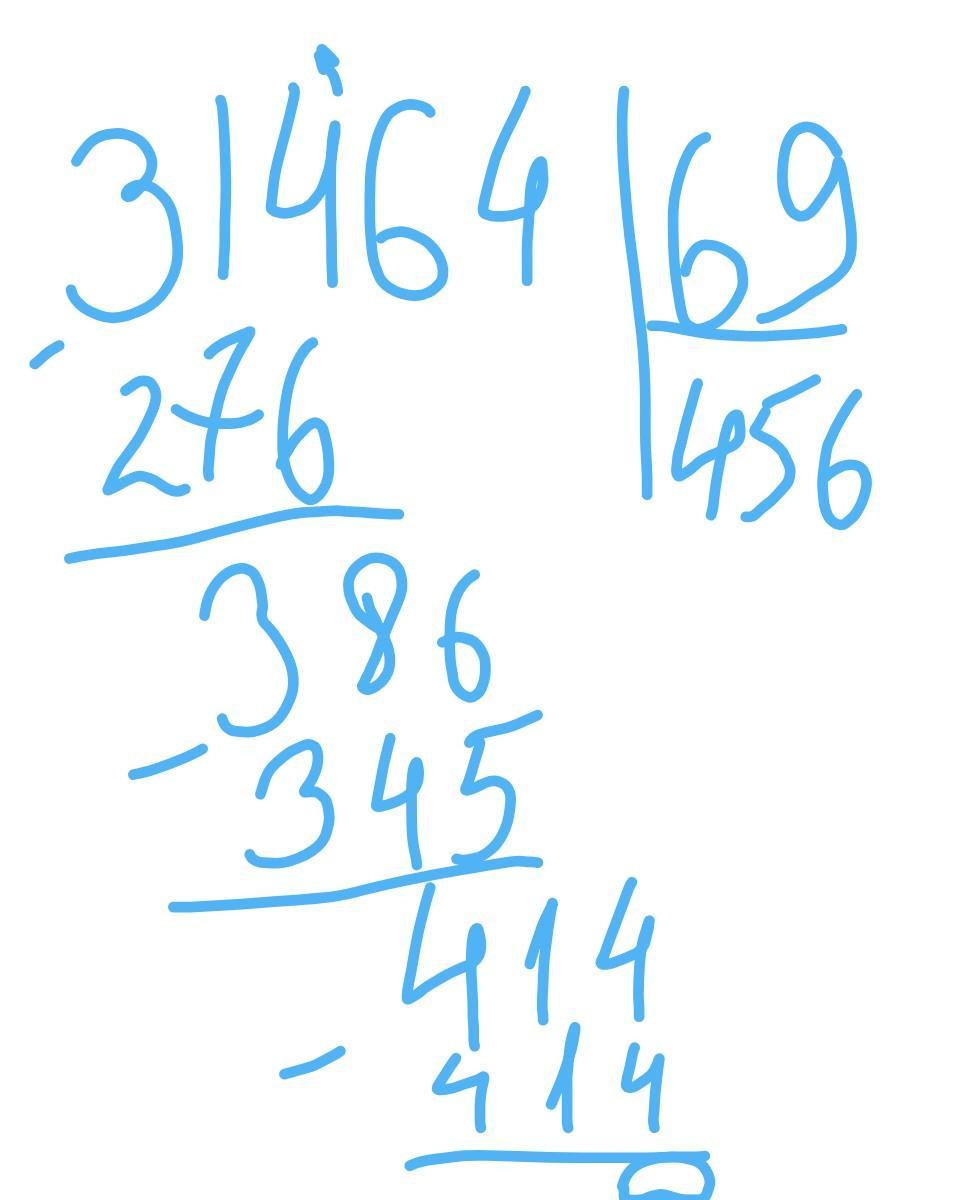 31464 | 69
- 276 | 456
386
- 345
414
- 414
0